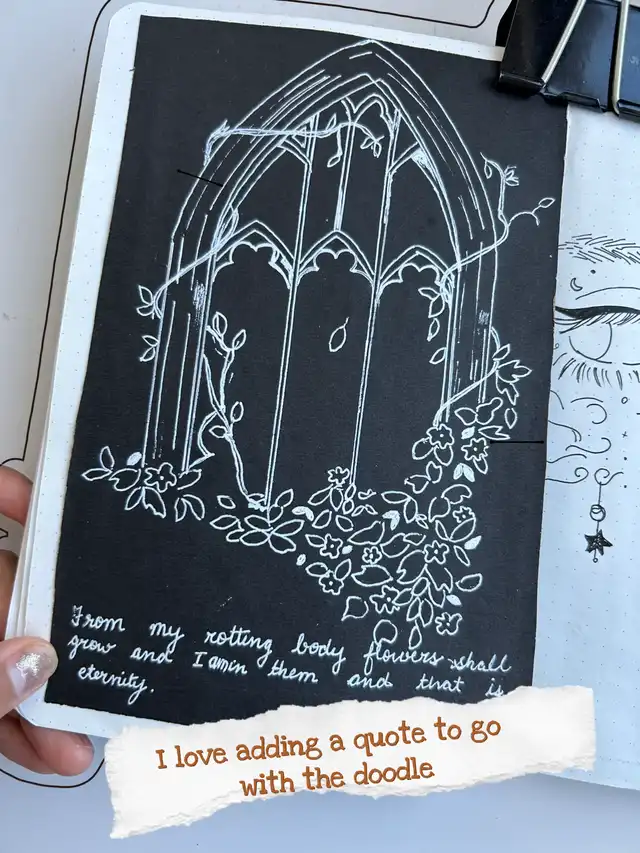 From my rotting body flowers shall
grow and I am in them and that is
eternity.
I love adding a quote to go
with the doodle